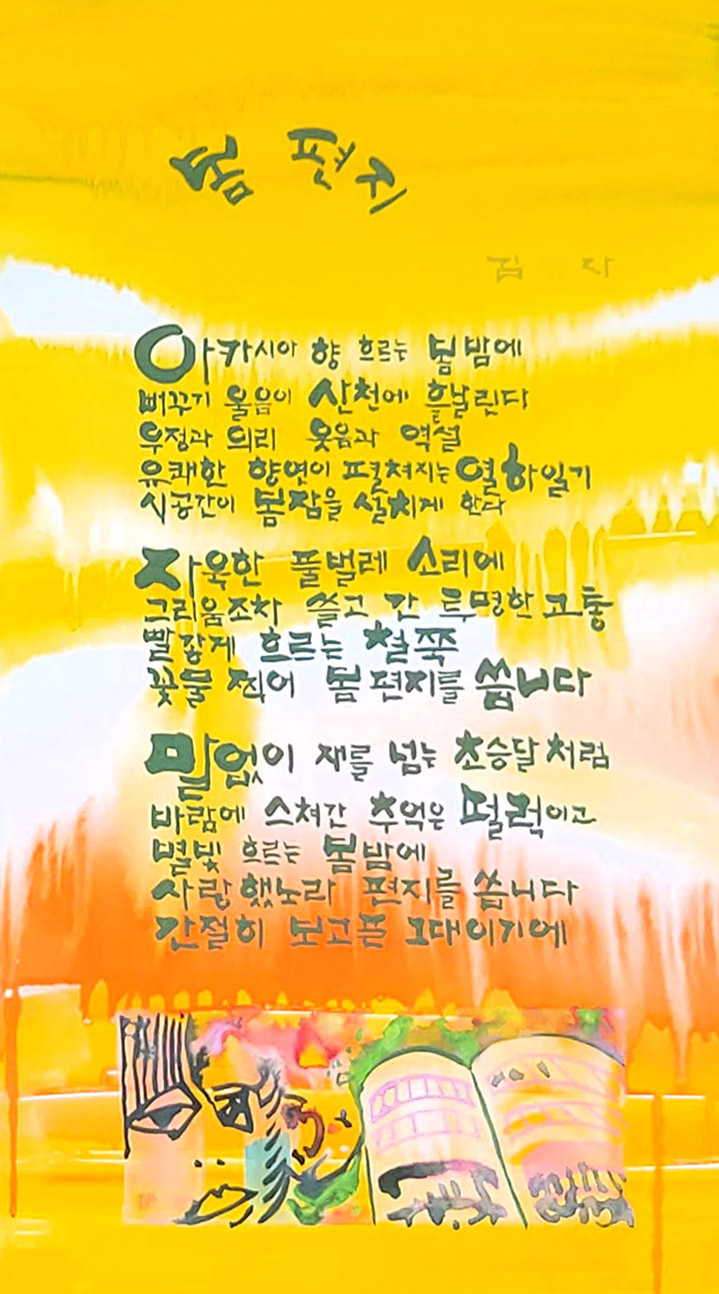 봄 편지
김 자
아카시아 향 흐르는 봄밤에
뻐꾸기 울음이 산천에 흩날린다
우정과 의리 웃음과 역설
유쾌한 향연이 펼쳐지는 열하일기
시공간이 봄잠을 설치게 한다
자욱한 풀벌레 소리에
그리움조차 쓸고 간 투명한 고통
빨갛게 흐르는 철쭉
꽃물 찍어 봄 편지를 씁니다
말없이 재를 넘는 초승달처럼
바람에 스쳐간 추억은 펄럭이고
별빛 흐르는 봄밤에
사랑했노라 편지를 씁니다
간절히 보고픈 그대이기에